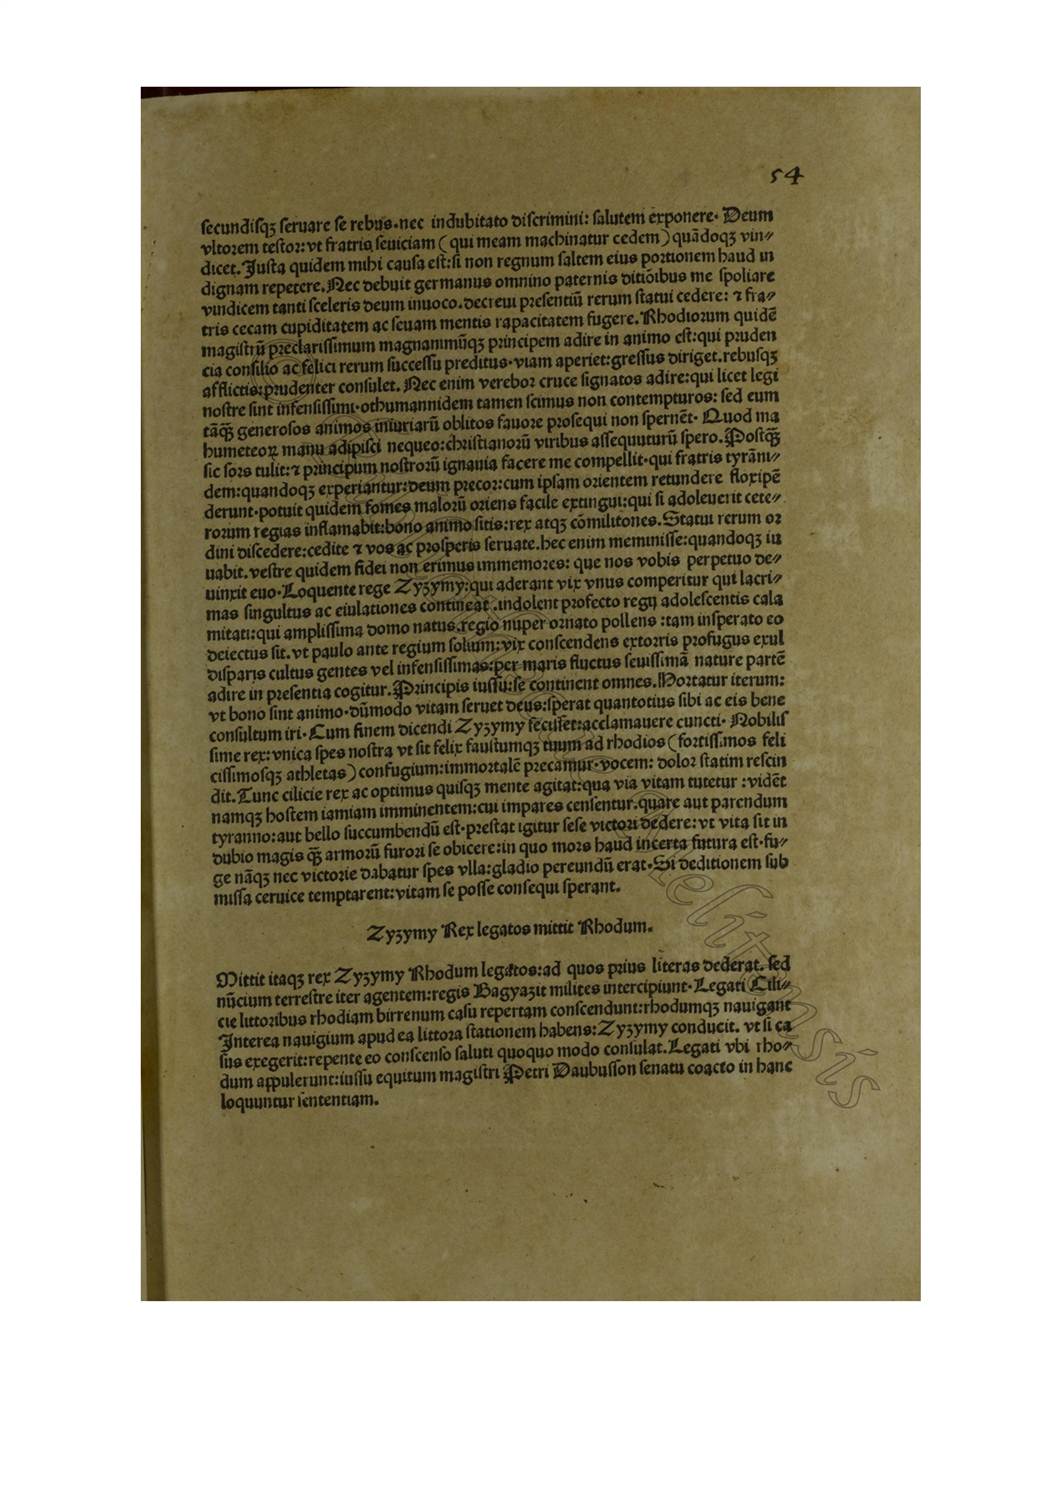 54
secundisqꝫ seruare se rebus.nec indubitato discrimini: salutem exponere· Deum
vltorem testor:vt fratris seuiciam (qui meam machinatur cedem) quãdoqꝫ vin⸗
dicet.Iusta quidem mihi causa est:si non regnum saltem eius portionem haud in
dignam repetere.Nec debuit germanus omnino paternis ditiõibus me spoliare
vindicem tanti sceleris deum inuoco.decreui presentiũ rerum statui cedere: ⁊ fra⸗
tris cecam cupiditatem ac seuam mentis rapacitatem fugere.Rhodiorum quidẽ
magistrũ preclarissimum magnanimũqꝫ principem adire in animo est:qui pruden
cia consilio ac felici rerum successu preditus·viam aperiet:gressus diriget.rebusqꝫ
afflictis:prudenter consulet. Nec enim verebor cruce signatos adire:qui licet legi
nostre sint infensissimi·othumannidem tamen scimus non contempturos: sed eum
tãqꝫ̃ generosos animos iniuriarũ oblitos fauore prosequi non spernẽt· Quod ma
humeteoꝝ manu adipisci nequeo:christianorũ viribus assequuturũ spero.Postqꝫ̃
sic sors tulit:⁊ principum nostrorũ ignauia facere me compellit·qui fratris tyrãni⸗
dem:quandoqꝫ experiantur:deum precor:cum ipsam orientem retundere floxipẽ
derunt·potuit quidem fomes malorũ oriens facile extingui:qui si adoleuerit cete⸗
rorum regias inflamabit:bono animo sitis:rex atqꝫ cõmilitones.Statui rerum or
dini discedere:cedite ⁊ vos ac prosperis seruate.hec enim meminisse:quandoqꝫ iu
uabit.vestre quidem fidei non erimus immemores: que nos vobis perpetuo de⸗
uinxit euo·Loquente rege Zyꝫymy:qui aderant vix vnus comperitur qui lacri⸗
mas singultus ac eiulationes contineat .indolent profecto regij adolescentis cala
mitati:qui amplissima domo natus.regio nuper ornato pollens :tam insperato eo
deiectus sit.vt paulo ante regium solium:vix conscendens extorris profugus exul
disparis cultus gentes vel infensissimas:per maris fluctus seuissimã nature partẽ
adire in presentia cogitur.Principis iussu:se continent omnes.Hortatur iterum:
vt bono sint animo·dũmodo vitam seruet deus:sperat quantotius sibi ac eis bene
consultum iri·Cum finem dicendi Zyꝫymy fecisset:acclamauere cuncti· Nobilis
sime rex:vnica spes nostra vt sit felix faustumqꝫ tuum ad rhodios (fortissimos feli
cissimosqꝫ athletas) confugium:immortalẽ precamur·vocem: dolor statim rescin
dit.Tunc cilicie rex ac optimus quisqꝫ mente agitat:qua via vitam tutetur :vidẽt
namqꝫ hostem iamiam imminentem:cui impares censentur.quare aut parendum
tyranno:aut bello succumbendũ est·prestat igitur sese victori dedere:vt vita sit in
dubio magis qꝫ̃ armorũ furori se obicere:in quo mors haud incerta futura est·fu⸗
ge nãqꝫ nec victorie dabatur spes vlla:gladio pereundũ erat·Si deditionem sub
missa ceruice temptarent:vitam se posse consequi sperant.
Zyꝫymy Rex legatos mittit Rhodum.
Mittit itaqꝫ rex Zyꝫymy Rhodum legatos:ad quos prius literas dederat. sed
nũcium terrestre iter agentem:regis Bagyaꝫit milites intercipiunt·Legati Cili⸗
cie littoribus rhodiam birrenum casu repertam conscendunt:rhodumqꝫ nauigant
Interea nauigium apud ea littora stationem habens:Zyꝫymy conducit. vt si ca
sus exegerit:repente eo conscenso saluti quoquo modo consulat.Legati vbi rho⸗
dum appulerunt:iussu equitum magistri Petri Daubusson senatu coacto in hanc
loquuntur sententiam.